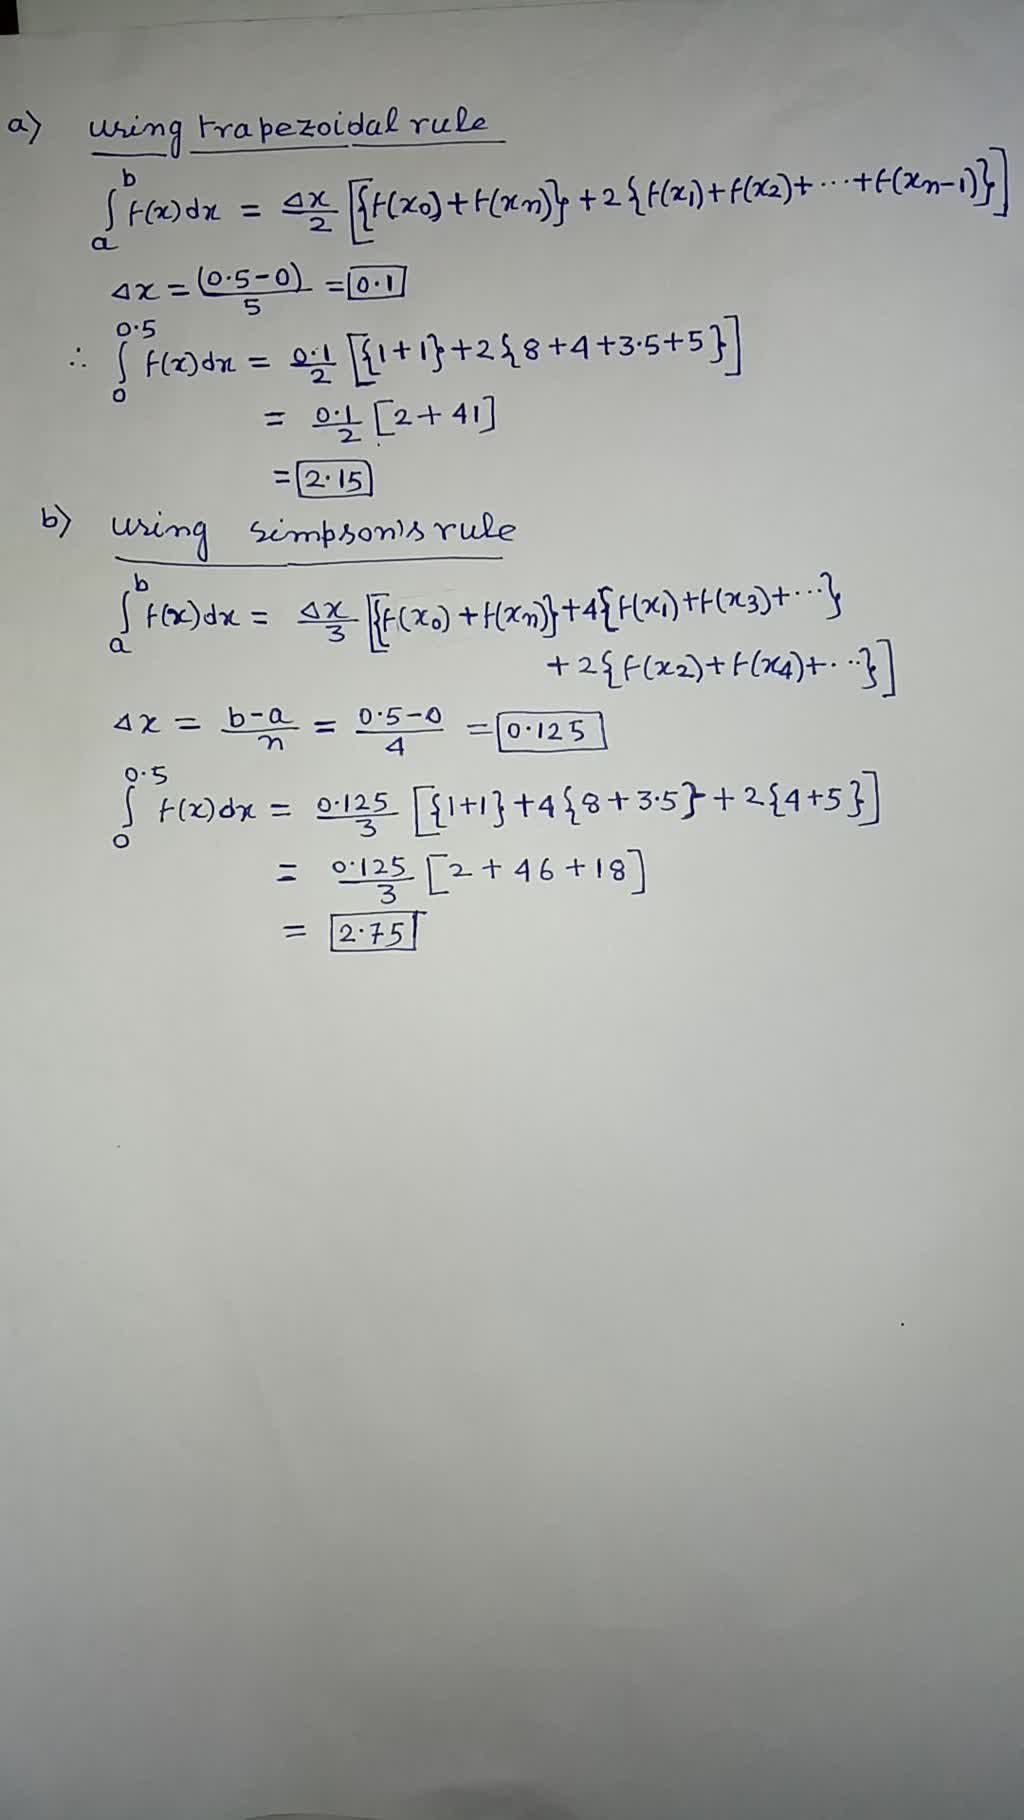 a) using trapezoidal rule
∫_a^b f(x)dx = Δx/2 [{f(x₀)+f(xn)}+2{f(x₁)+f(x₂)+⋯+f(xn-1)}]
Δx = (0.5-0)/5 = 0.1
∴ ∫_0^0.5 f(x)dx = 0.1/2 [{1+1}+2{8+4+3.5+5}]
= 0.1/2 [2+41]
= 2.15
b) using simpson's rule
∫_a^b f(x)dx = Δx/3 [{f(x₀)+f(xn)}+4{f(x₁)+f(x₃)+⋯}
+2{f(x₂)+f(x₄)+⋯}]
Δx = b-a/n = 0.5-0/4 = 0.125
∫_0^0.5 f(x)dx = 0.125/3 [{1+1}+4{8+3.5}+2{4+5}]
= 0.125/3 [2+46+18]
= 2.75